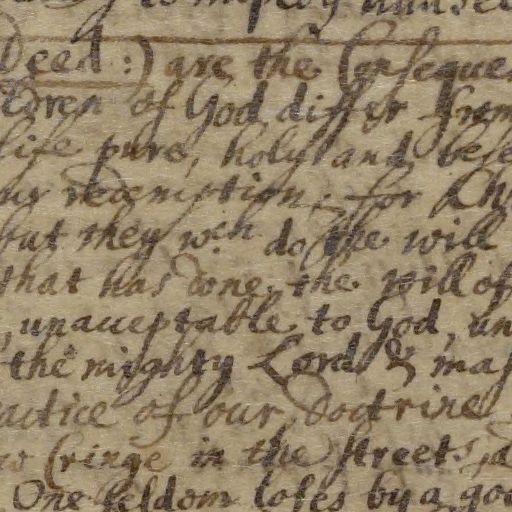 to imploy himsel
Deed:) are the Conseque
ldren of God differ from
life pure, holy and bese
our redemption, for Ch
but they wch do the will
that has done the Will of
, unacceptable to God, un
the mighty Lord & mas
actice of our Doctrine
Cringe in the streets, a
One seldom loses by a goo